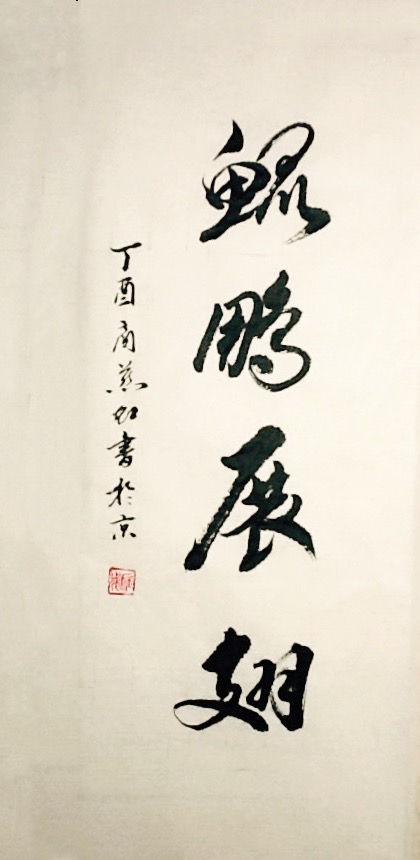 鲲鹏展翅
丁酉商燕虹書於京